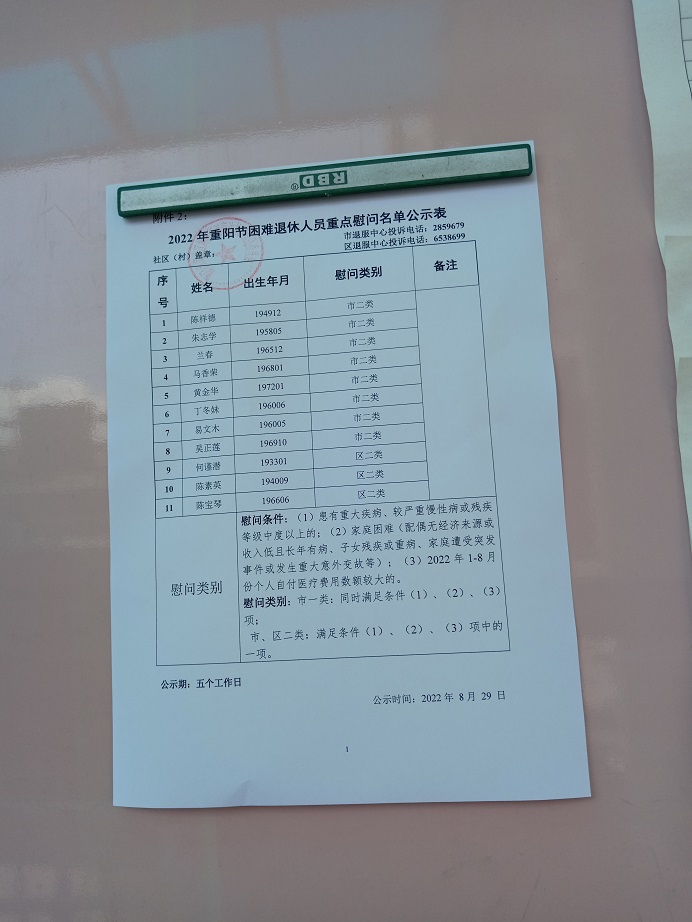 RBD®
附件 2：
2022 年重阳节困难退休人员重点慰问名单公示表
市退服中心投诉电话：2859679
社区（村）盖章：
区退服中心投诉电话：6538699
序号 姓名 出生年月 慰问类别 备注
1 陈祥德 194912 市二类
2 朱志学 195805 市二类
3 兰春 196512 市二类
4 马香荣 196801 市二类
5 黄金华 197201 市二类
6 丁冬妹 196006 市二类
7 易文木 196005 市二类
8 吴正莲 196910 市二类
9 何谨潜 193301 区二类
10 陈素英 194009 区二类
11 陈宝琴 196606 区二类
慰问类别
慰问条件：（1）患有重大疾病、较严重慢性病或残疾
等级中度以上的；（2）家庭困难（配偶无经济来源或
收入低且长年有病、子女残疾或重病、家庭遭受突发
事件或发生重大意外变故等）；（3）2022 年 1-8 月
份个人自付医疗费用数额较大的。
慰问类别：市一类：同时满足条件（1）、（2）、（3）
项；
市、区二类：满足条件（1）、（2）、（3）项中的
一项。
公示期：五个工作日
公示时间：2022 年 8 月 29 日
1